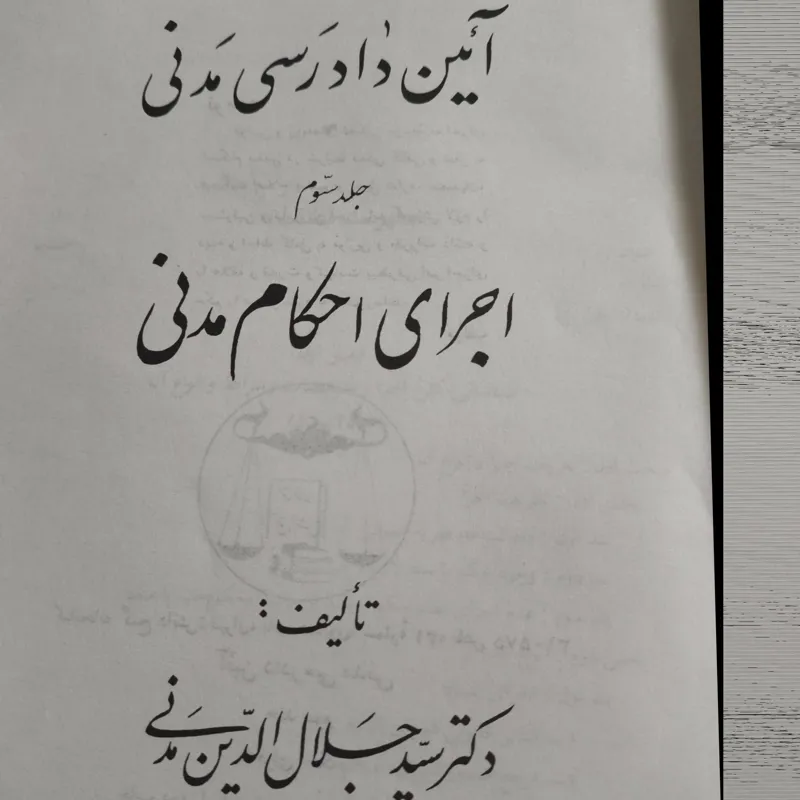 آئین دادرسی مدنی
جلد سوّم
اجرای احکام مدنی
تألیف :
دکتر سیّد جلال الدّین مدنی